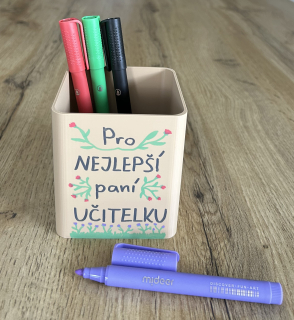 Pro
NEJLEPŠÍ
paní
UČITELKU
mideer